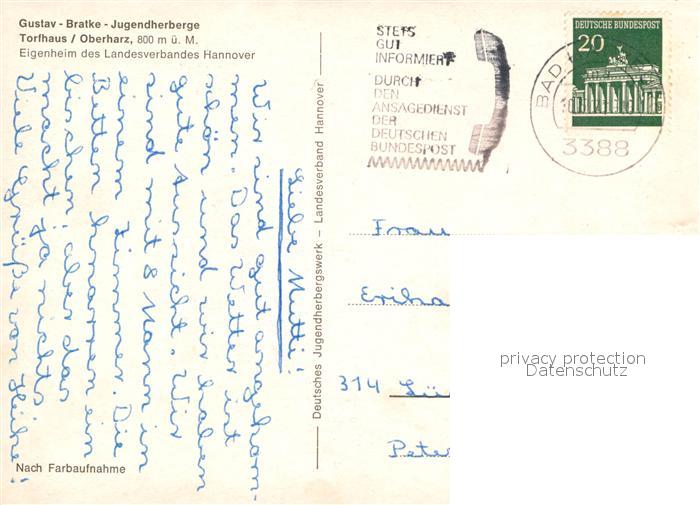 Gustav - Bratke - Jugendherberge
Torfhaus / Oberharz, 800 m ü. M.
Eigenheim des Landesverbandes Hannover
Liebe Mutti!
Wir sind gut angekom-
men. Das Wetter ist
schön und wir haben
gute Aussicht. Wir
sind mit 8 Mann in
einem Zimmer. Die
Betten knarren ein
bischen, aber das
macht ja nichts
Viele Grüße von Heike!
Nach Farbaufnahme
Deutsches Jugendherbergswerk – Landesverband Hannover
STETS
GUT
INFORMIERT
DURCH
DEN
ANSAGEDIENST
DER
DEUTSCHEN
BUNDESPOST
DEUTSCHE BUNDESPOST
20
BAD
3388
Frau
Erika
314 Lü
Peter
privacy protection
Datenschutz